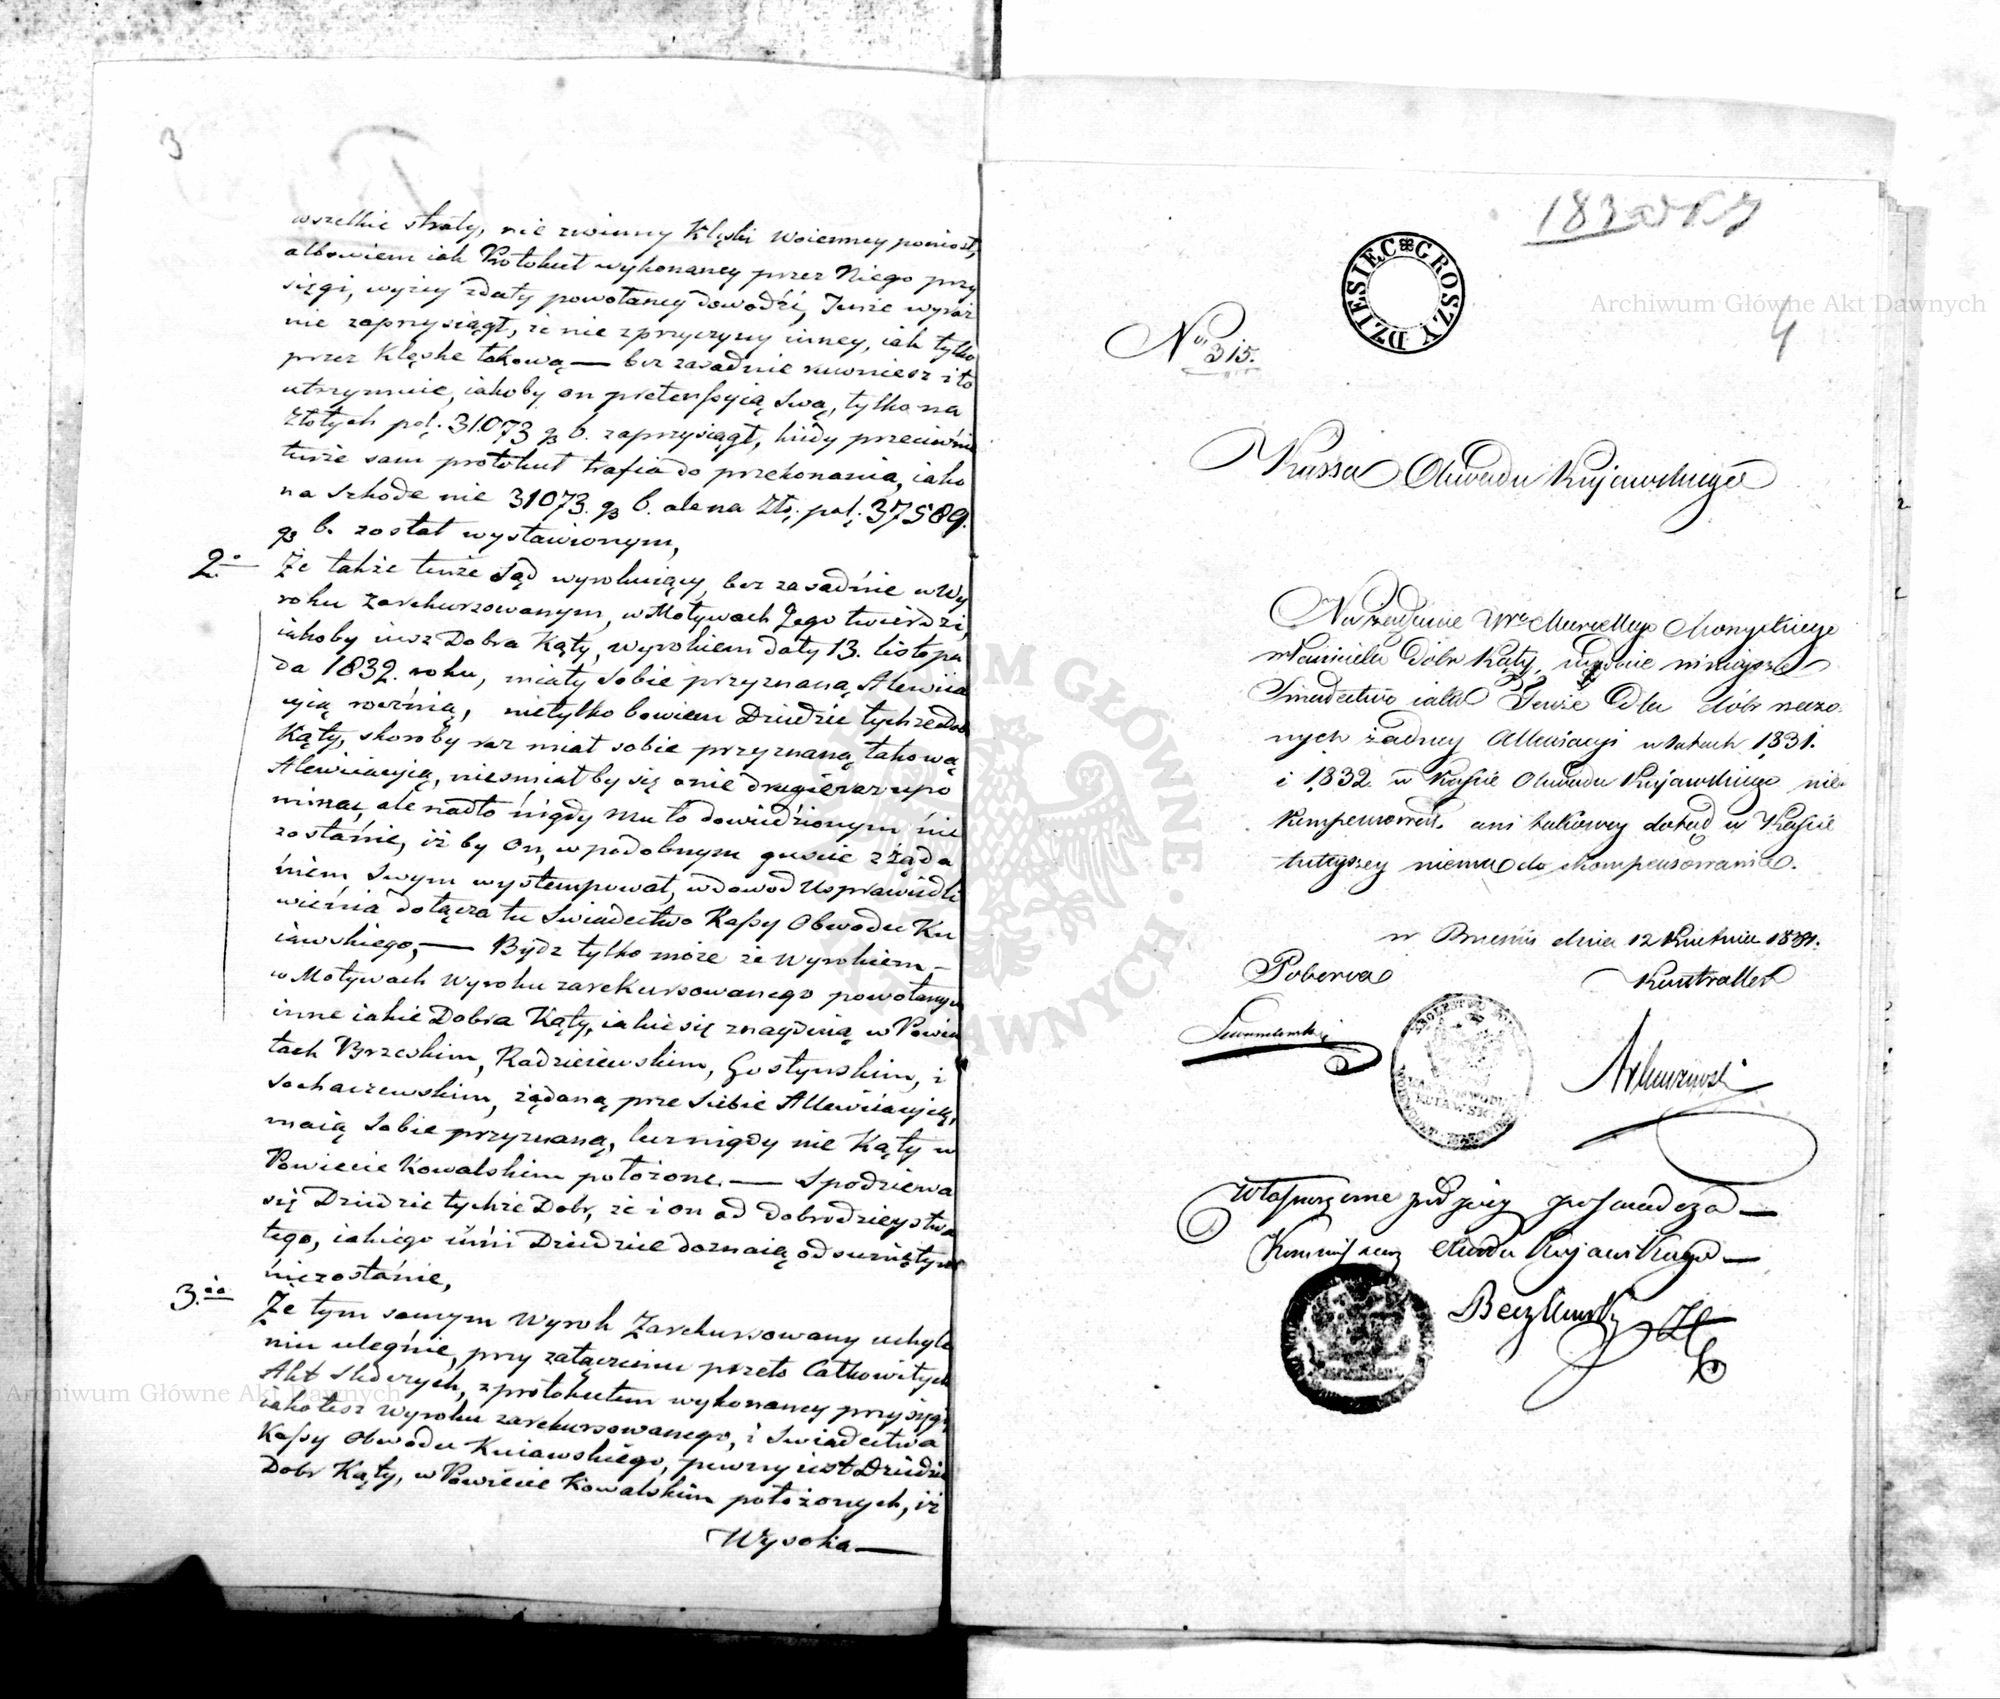 3
wszelkie straty, nie zwinny Klęski Woienney poniosł,
albowiem iak Protokuł wykonaney przez Niego przy
sięgi, wyżey zdaty powołaney dowodzi, Tenże wyraź
nie zaprzysiągł, że nie zprzyczyny inney, iak tylko
przez Klęske takową — bez zasadnie ruwniesz i to
utrzymuie, iakoby on pretensyią Swą, tylko na
Złotych pol: 31.073 gs 6. zaprzysiągł, kiedy przeciwnie
tenże sam protokuł trafia do przekonania, iako
na szkode nie 31073. gs 6. ale na Złt: pol: 37589.
gs 6. został wystawionym,
2.o Że także tenże Sąd wyrokuiący, bez zasadnie w Wy
roku Zarekursowanym, w Motywach Jego twierdzi,
iakoby iusz Dobra Kąty, wyrokiem daty 13. listopa
da 1832. roku, miały Sobie przyznaną Alewiia
cyią roczną, nietylko bowiem Dziedzic tychże Dobr
Kąty, skoroby raz miał sobie przyznaną takową
Alewiiacyią, niesmiałby się onie drugi raz upo
minać, ale nadto nigdy mu to dowiedzionym nie
zostanie, iż by On, w podobnym guście z żąda
niem Swym wystempował, w dowod Usprawiedli
wienia dołącza tu Swiadectwo Kassy Obwodu Ku
iawskiego, — Bydz tylko może że Wyrokiem –
w Motywach Wyroku zarekursowanego powołanym
inne iakie Dobra Kąty, iakie się znayduią w Powia
tach Brzeskim, Radzieiewskim, Gostynskim, i
Sochaczewskim, żądaną prze Siebie Allewiiacyią,
maią Sobie przyznaną, lecz nigdy nie Kąty w
Powiecie Kowalskim położone. — Spodziewa
się Dziedzic tychże Dobr, że i on od dobrodzieystwa
tego, iakiego inni Dziedzice doznaią odsuniętym
niezostanie,
3.io Że tym samym Wyrok Zarekursowany uchyle
niu ulegnie, przy załączeniu przeto Całkowitych
Akt Sledczych, z protokułem wykonaney przysięgi,
iakotesz Wyroku zarekursowanego, i Swiadectwa
Kassy Obwodu Kuiawskiego, pewny iest Dziedzic
Dobr Kąty, w Powiecie Kowalskim położonych, iż
Wysoka —
4
DZIESIĘĆ GROSZY
No 315.
Kassa Obwodu Kujawskiego
Na żądanie Wgo Marcellego
właściciela Dobr Kąty, wydaie niniejsze
Świadectwo iako Tenże Dla dóbr rzeczo-
nych żadney Allewiacyi w latach 1831.
i 1832. w Kassie Obwodu Kujawskiego nie-
kompensował, ani takowey dotąd w Kassie
tuteyszey niema do skompensowania.
w Brzesciu dnia 12 Kwietnia
Poborca Kontroller
Własnoręczne podpisy poświadcza —
Kommissarz Obwodu Kujawskiego —
Archiwum Główne Akt Dawnych
Archiwum Główne Akt Dawnych